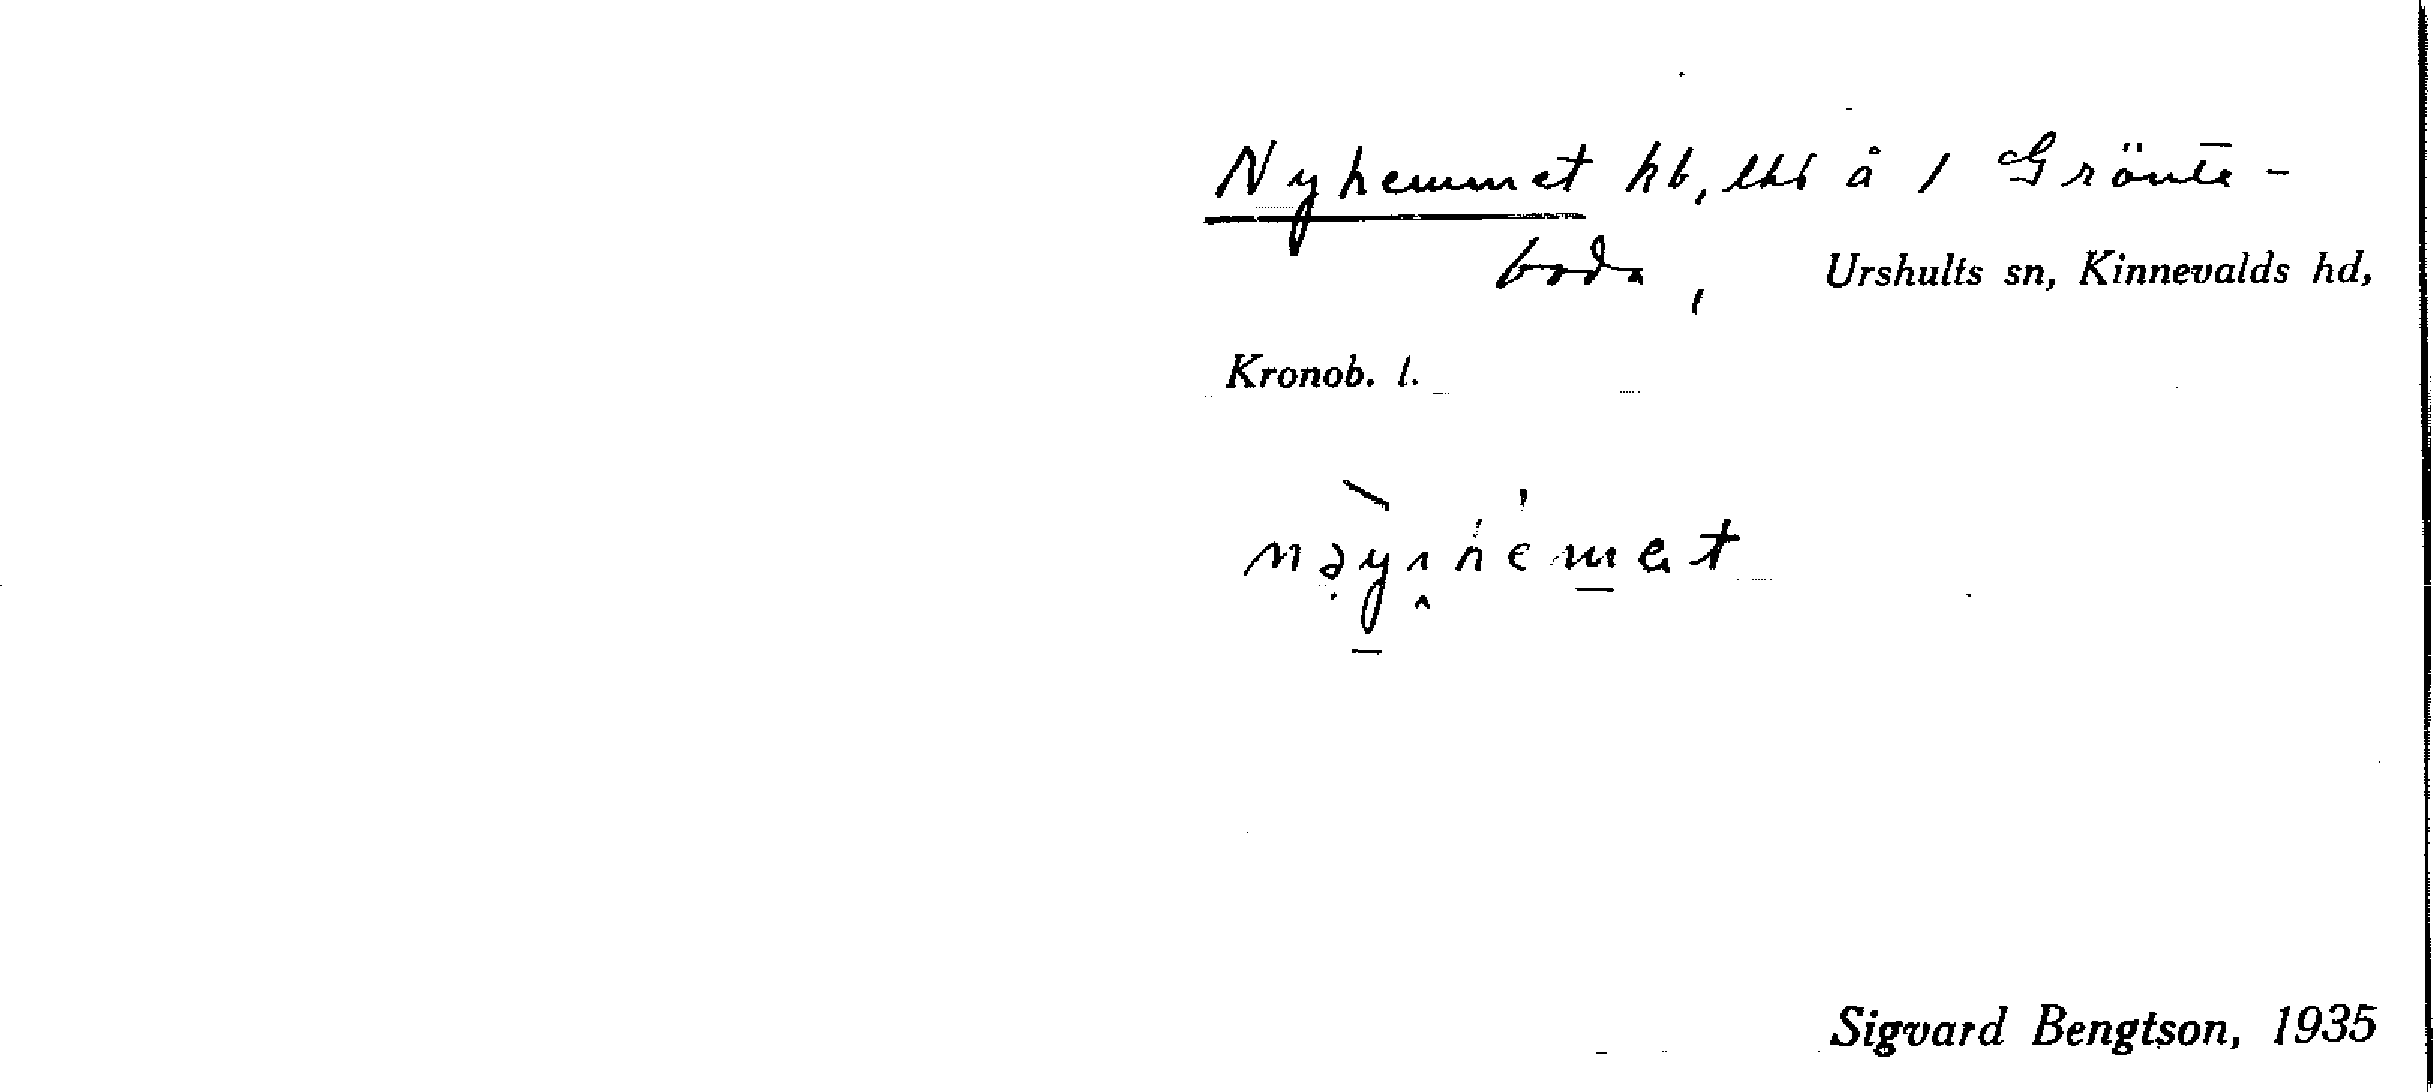 Nyhemmet hb, lht å 1 Grönte-
boda, Urshults sn, Kinnevalds hd,
Kronob. l.
Sigvard Bengtson, 1935